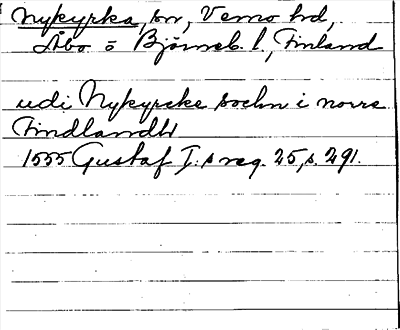 Nykyrka, sn, Vemo hd,
Åbo o Björneb. l, Finland
udi Nykyrcke sochn i norre
Findlandh
1555 Gustaf I:s reg. 25, s. 291.